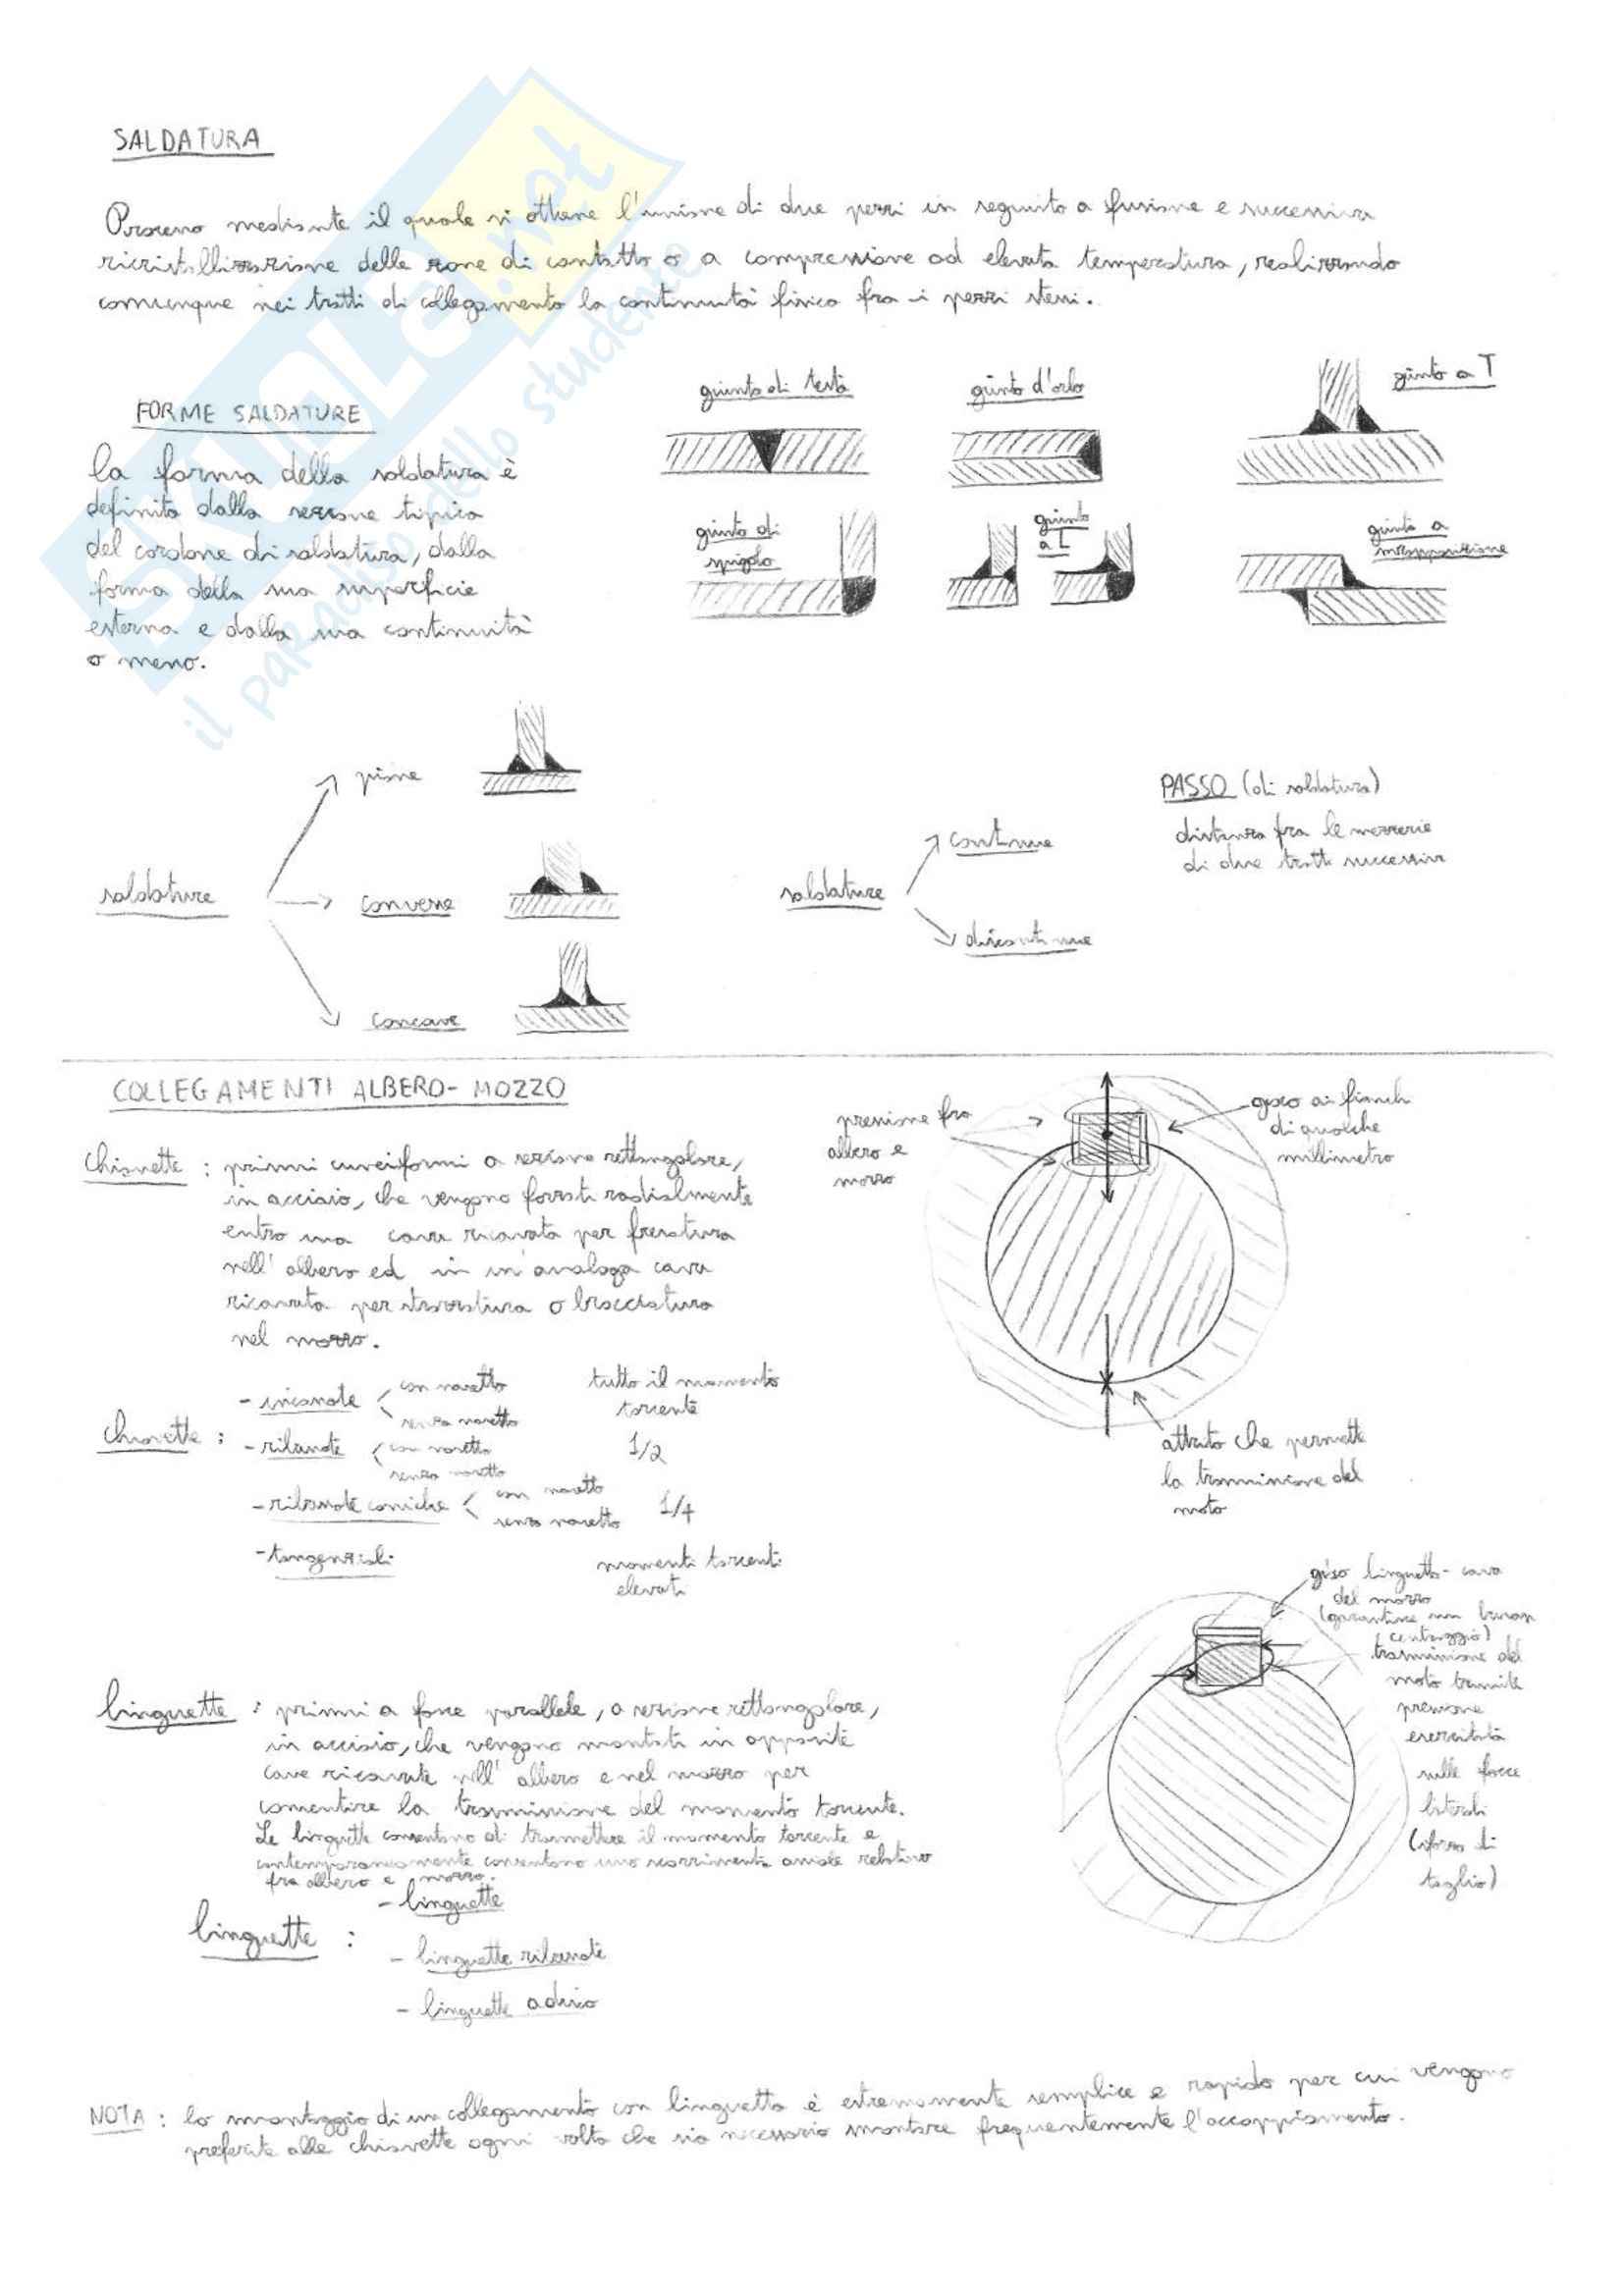 SALDATURA
Processo mediante il quale si ottiene l'unione di due pezzi in seguito a fusione e successiva
ricristallizzazione delle zone di contatto o a compressione ad elevata temperatura, realizzando
comunque nei tratti di collegamento la continuità fisica fra i pezzi stessi.
FORME SALDATURE
la forma della saldatura è
definita dalla sezione tipica
del cordone di saldatura, dalla
forma della sua superficie
esterna e dalla sua continuità
o meno.
giunto di testa
giunto d'orlo
giunto a T
giunto di
spigolo
giunto
a L
giunto a
sovrapposizione
saldature
piane
convesse
concave
saldature
continue
discontinue
PASSO (di saldatura)
distanza fra le mezzerie
di due tratti successivi
COLLEGAMENTI ALBERO-MOZZO
Chiavette : prismi cuneiformi a sezione rettangolare,
in acciaio, che vengono forzati radialmente
entro una cava ricavata per fresatura
nell'albero ed in un'analoga cava
ricavata per stozzatura o brocciatura
nel mozzo.
pressione fra
albero e
mozzo
gioco ai fianchi
di qualche
millimetro
attrito che permette
la trasmissione del
moto
Chiavette :
- incassate con nasetto senza nasetto tutto il momento
torcente
- ribassate con nasetto senza nasetto 1/2
- ribassate coniche con nasetto senza nasetto 1/4
- tangenziali momenti torcenti
elevati
linguette : prismi a facce parallele, a sezione rettangolare,
in acciaio, che vengono montati in apposite
cave ricavate nell'albero e nel mozzo per
consentire la trasmissione del momento torcente.
Le linguette consentono di trasmettere il momento torcente e
contemporaneamente consentono uno scorrimento assiale relativo
fra albero e mozzo.
linguette :
- linguette
- linguette ribassate
- linguette a disco
gioco linguetta-cava
del mozzo
(garantisce un buon
centraggio)
trasmissione del
moto tramite
pressione
esercitata
sulle facce
laterali
(sforzo di
taglio)
NOTA : lo montaggio di un collegamento con linguetta è estremamente semplice e rapido per cui vengono
preferite alle chiavette ogni volta che sia necessario smontare frequentemente l'accoppiamento.
SKUOLA.net
il paradiso dello studente